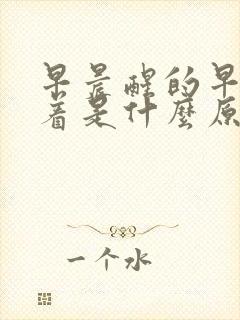 早晨醒的早
着是什麼原
一个水